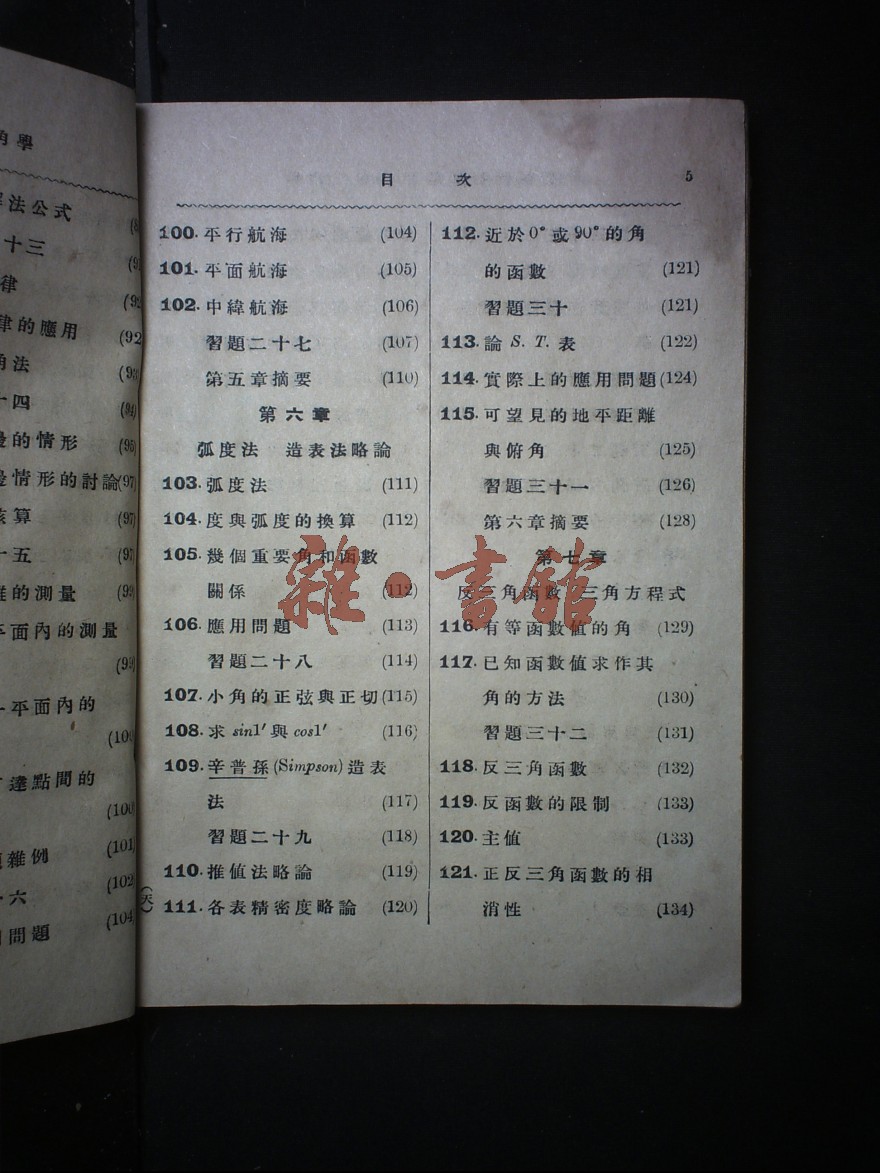 角學
法公式
十三
律
(92
律的應用
(92
角法
(93
十四
(94)
的情形
(95)
情形的討論(97)
算
(97)
十五
(97)
的測量
(99)
平面內的測量
(99)
平面內的
(100
達點間的
(100
雜例
(101)
十六
(102
問題
(104
目 次 5
100. 平行航海 (104)
101. 平面航海 (105)
102. 中緯航海 (106)
習題二十七 (107)
第五章摘要 (110)
第六章
弧度法 造表法略論
103. 弧度法 (111)
104. 度與弧度的換算 (112)
105. 幾個重要角和函數
關係 (112)
106. 應用問題 (113)
習題二十八 (114)
107. 小角的正弦與正切 (115)
108. 求 sin1′ 與 cos1′ (116)
109. 辛普孫 (Simpson) 造表
法 (117)
習題二十九 (118)
110. 推值法略論 (119)
111. 各表精密度略論 (120)
112. 近於0°或90°的角
的函數 (121)
習題三十 (121)
113. 論 S. T. 表 (122)
114. 實際上的應用問題 (124)
115. 可望見的地平距離
與俯角 (125)
習題三十一 (126)
第六章摘要 (128)
第七章
反三角函數 三角方程式
116. 有等函數值的角 (129)
117. 已知函數值求作其
角的方法 (130)
習題三十二 (131)
118. 反三角函數 (132)
119. 反函數的限制 (133)
120. 主值 (133)
121. 正反三角函數的相
消性 (134)
雜·書館